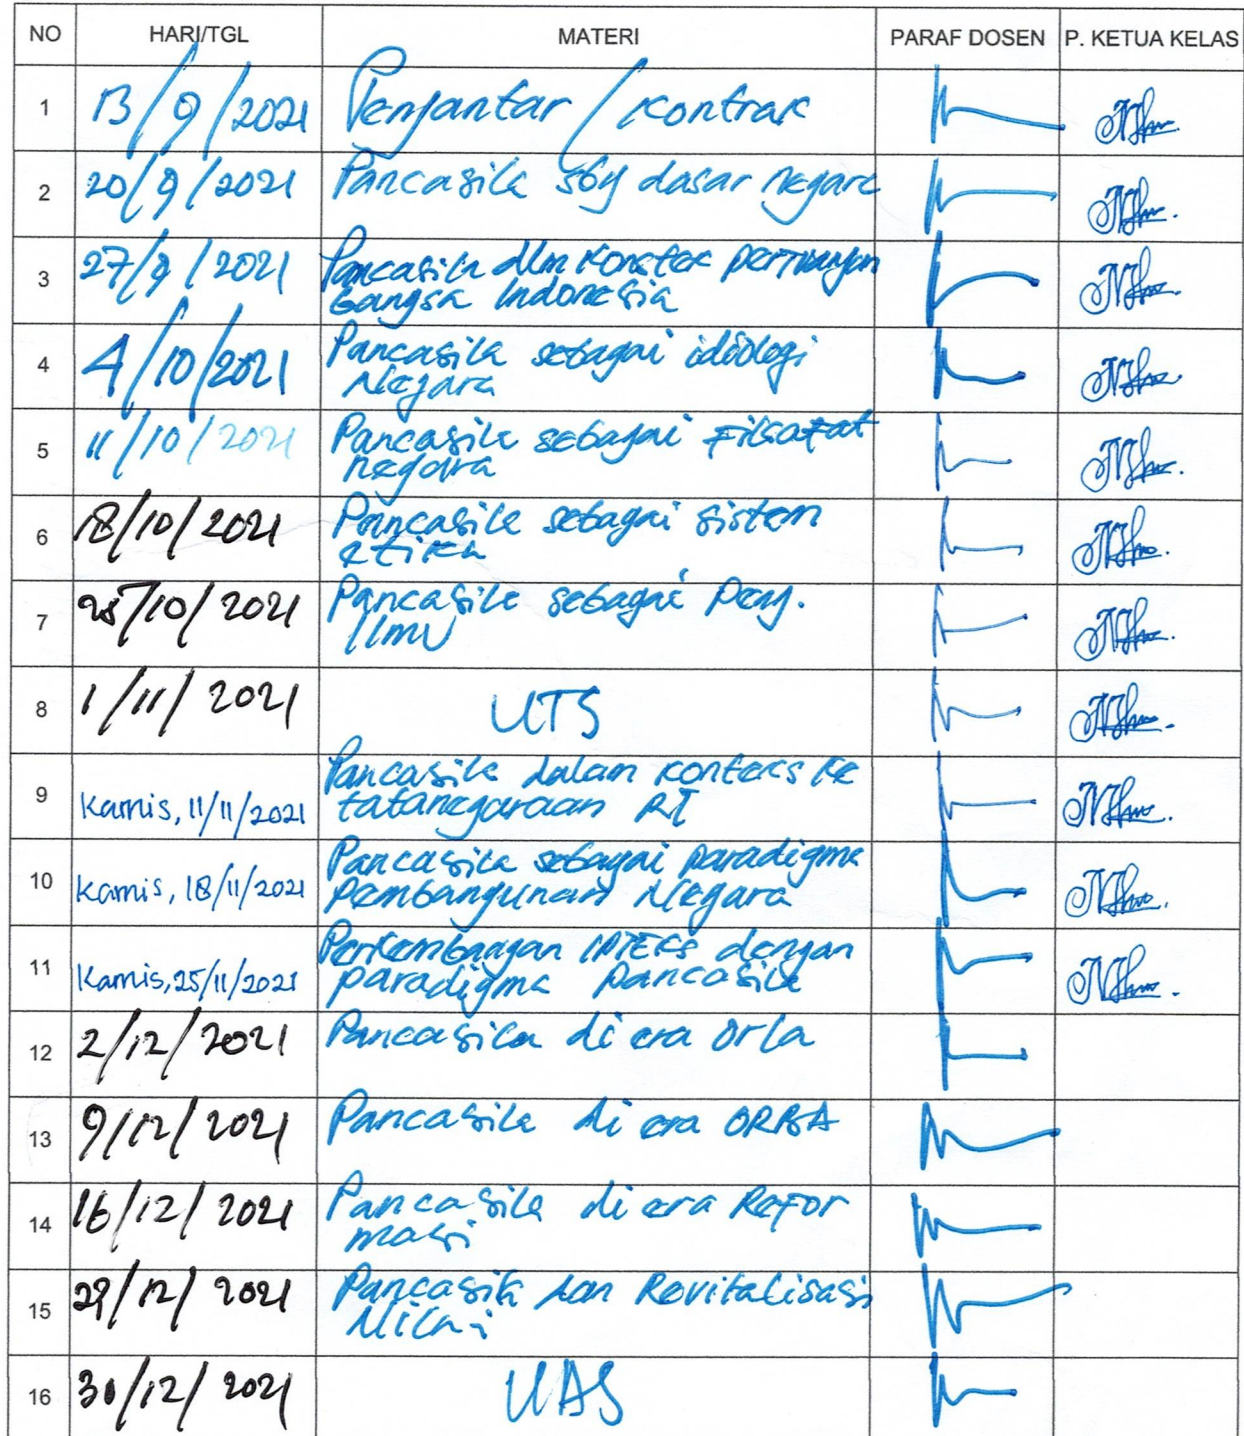 NO HARI/TGL MATERI PARAF DOSEN P. KETUA KELAS
1 13/9/2021 Pengantar / kontrak
2 20/9/2021 Pancasila sbg dasar negara
3 27/9/2021 Pancasila dlm Konteks perjuangan
bangsa Indonesia
4 4/10/2021 Pancasila sebagai idiologi
Negara
5 11/10/2021 Pancasila sebagai Filsafat
negara
6 18/10/2021 Pancasila sebagai sistem
etika
7 25/10/2021 Pancasila sebagai
Ilmu
8 1/11/2021 UTS
9 Kamis, 11/11/2021 Pancasila dalam konteks ke
tatanegaraan RI
10 Kamis, 18/11/2021 Pancasila sebagai paradigma
Pembangunan Negara
11 Kamis, 25/11/2021 Perkembangan IPTEKS dengan
paradigma Pancasila
12 2/12/2021 Pancasila di era Orla
13 9/12/2021 Pancasila di era ORBA
14 16/12/2021 Pancasila di era Refor
masi
15 /12/2021 Pancasila dan Revitalisasi
Nilai
16 30/12/2021 UAS